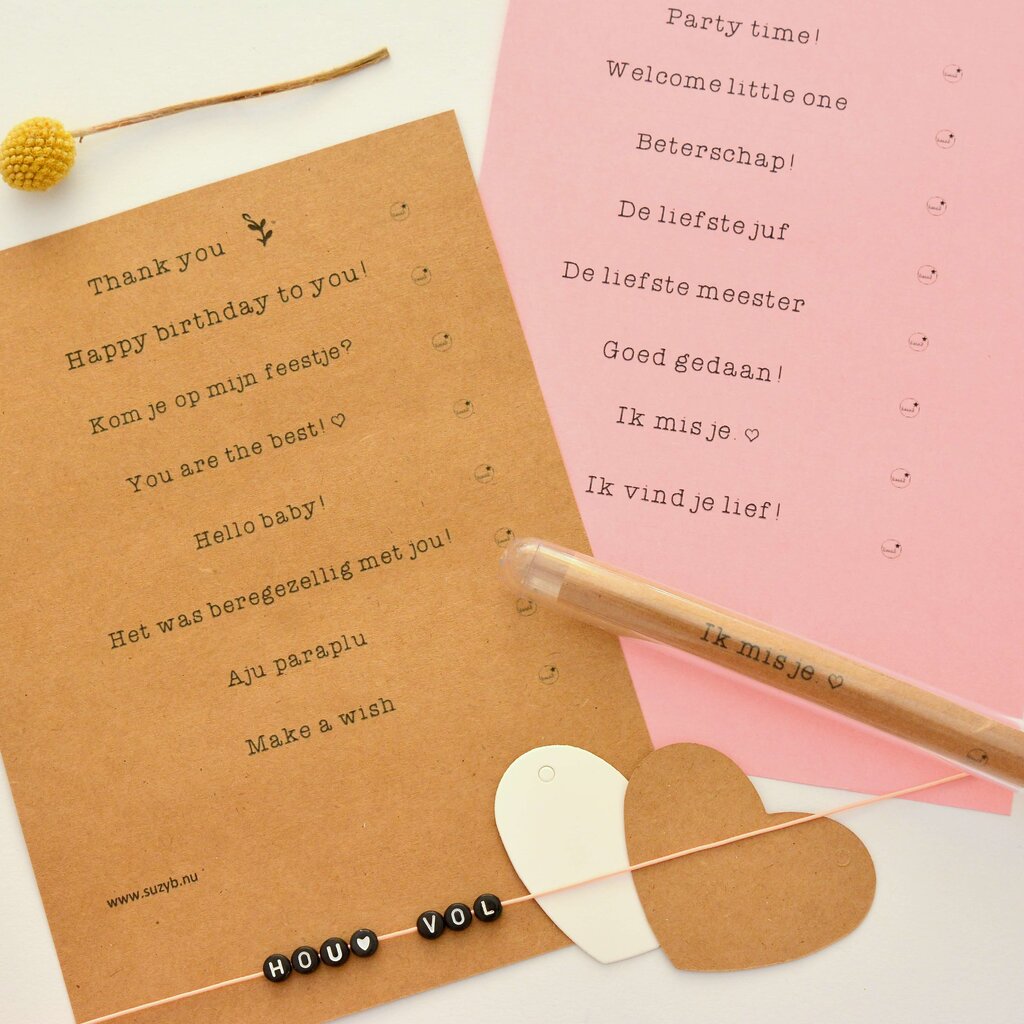 Thank you
Happy birthday to you!
Kom je op mijn feestje?
You are the best! ♡
Hello baby!
Het was beregezellig met jou!
Aju paraplu
Make a wish
www.suzyb.nu
HOU♥ VOL
Party time!
Welcome little one
Beterschap!
De liefste juf
De liefste meester
Goed gedaan!
Ik mis je ♡
Ik vind je lief!
Ik mis je ♡